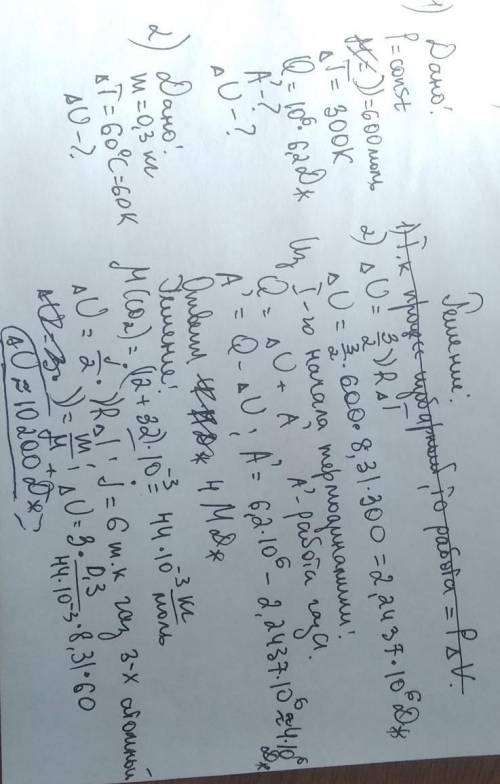 1) Дано:
P=const
ν=600моль
ΔT=300K
Q=10⁶·6,2Дж
A'-?
ΔU-?
Решение:
1) Т.к процесс изобарный, то работа = PΔV.
2) ΔU = 3/2 νRΔT
ΔU = 3/2·600·8,31·300 = 2,2437·10⁶Дж
Из I-го начала термодинамики:
Q = ΔU + A' A'-работа газа.
A' = Q - ΔU; A' = 6,2·10⁶ - 2,2437·10⁶ ≈ 4·10⁶ Дж
Ответ 4 МДж
2) Дано:
m=0,3 кг
ΔT=60°C=60K
ΔU-?
Решение:
M(CO2) = (12+32)·10⁻³ = 44·10⁻³ кг/моль
ΔU = j/2·νRΔT; j=6 т.к газ 3-х атомный
ν = m/M; ΔU = 3·0,3/44·10⁻³·8,31·60
ΔU ≈ 10200Дж